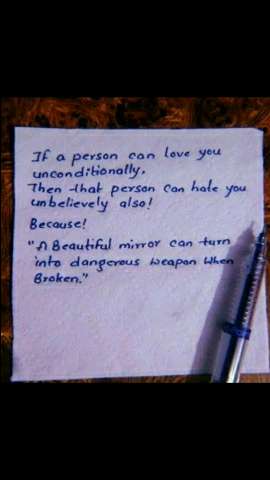 If a person can love you
unconditionally,
Then that person can hate you
unbelievely also!
Because!
"A Beautiful mirror can turn
into dangerous weapon when
Broken."